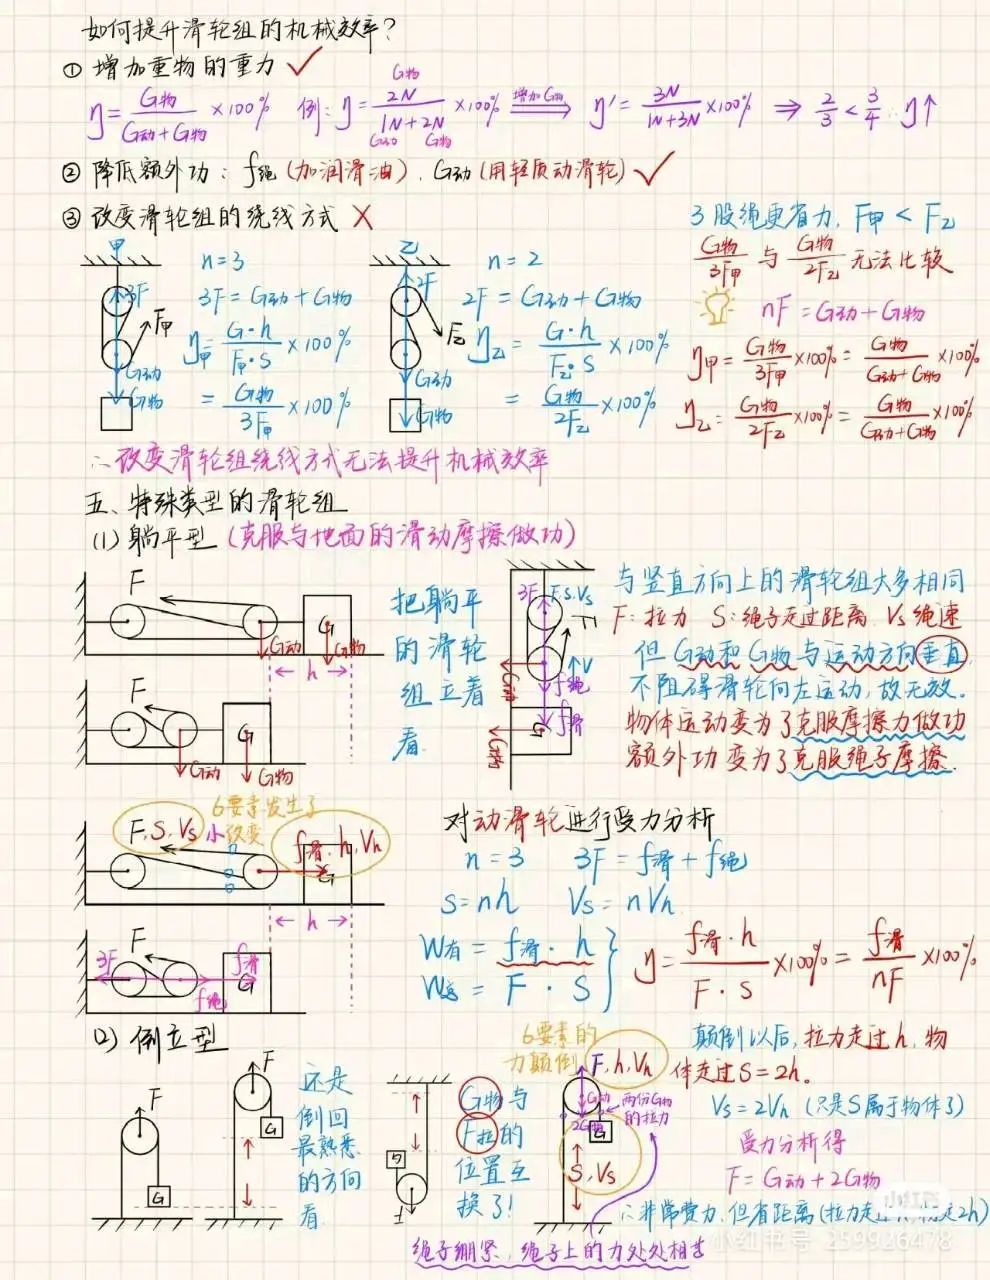 如何提升滑轮组的机械效率?
① 增加重物的重力 ✓
η = G物/(G动+G物) ×100% 例: η = 2N/(1N+2N) ×100% 增加G物 ⇒ η' = 3N/(1N+3N) ×100% ⇒ 2/3 < 3/4 ∴ η↑
G物
G动 G物
② 降低额外功: f绳 (加润滑油)、G动 (用轻质动滑轮) ✓
③ 改变滑轮组的绕线方式 ✗
甲
n=3
3F = G动+G物
η甲 = G·h/F甲·S ×100%
= G物/3F甲 ×100%
3F
F甲
G动
G物
乙
n=2
2F = G动+G物
η乙 = G·h/F乙·S ×100%
= G物/2F乙 ×100%
2F
F乙
G动
G物
3股绳更省力, F甲 < F乙
G物/3F甲 与 G物/2F乙 无法比较
nF = G动+G物
η甲 = G物/3F甲 ×100% = G物/(G动+G物) ×100%
η乙 = G物/2F乙 ×100% = G物/(G动+G物) ×100%
∴改变滑轮组绕线方式无法提升机械效率
五、特殊类型的滑轮组
(1) 躺平型 (克服与地面的滑动摩擦做功)
F
G
G动
G物
← h →
F
G
G动
G物
把躺平
的滑轮
组立着
看.
3F
F,S,Vs
F
↑V
f绳
f滑
G动
G
G物
与竖直方向上的滑轮组大多相同
F: 拉力 S: 绳子走过距离 Vs 绳速
但 G动和 G物 与运动方向垂直
不阻碍滑轮向左运动, 故无效.
物体运动变为了克服摩擦力做功
额外功变为了克服绳子摩擦.
6要素发生了
小改变
F, S, Vs
f滑、h, Vh
G
← h →
F
3F
f绳
f滑
G
对动滑轮进行受力分析
n=3 3F = f滑+f绳
S=nh Vs=nVh
W有 = f滑·h
W总 = F·S
η = f滑·h/F·S ×100% = f滑/nF ×100%
(2) 倒立型
F
G
F
G
还是
倒回
最熟悉
的方向
看.
G物与
F拉的
位置互
换了!
6要素的
力颠倒
F, h, Vh
G动
2G物
两份G物
的拉力
G
S, Vs
颠倒以后, 拉力走过h, 物
体走过S=2h。
Vs=2Vh (只是S属于物体了)
受力分析得
F = G动+2G物
∴非常费力, 但省距离(拉力走过h, 物走2h)
绳子绷紧, 绳子上的力处处相等
小红书
小红书号 259926478